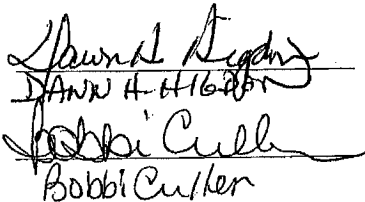 Dawn H Higdon
DAWN H. HIGDON
Bobbi Cullen
Bobbi Cullen